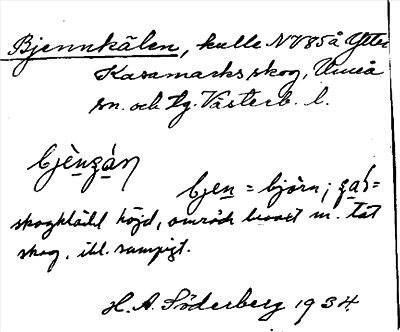 Bjennkälen, kulle NV 85 å Ytter
Kasamarks skog, Umeå
sn. och tg. Västerb. l.
bjen = björn;
skogklädd höjd, område bevuxet m. tät
skog, ibl. sumpigt.
H. A. Söderberg 1934.